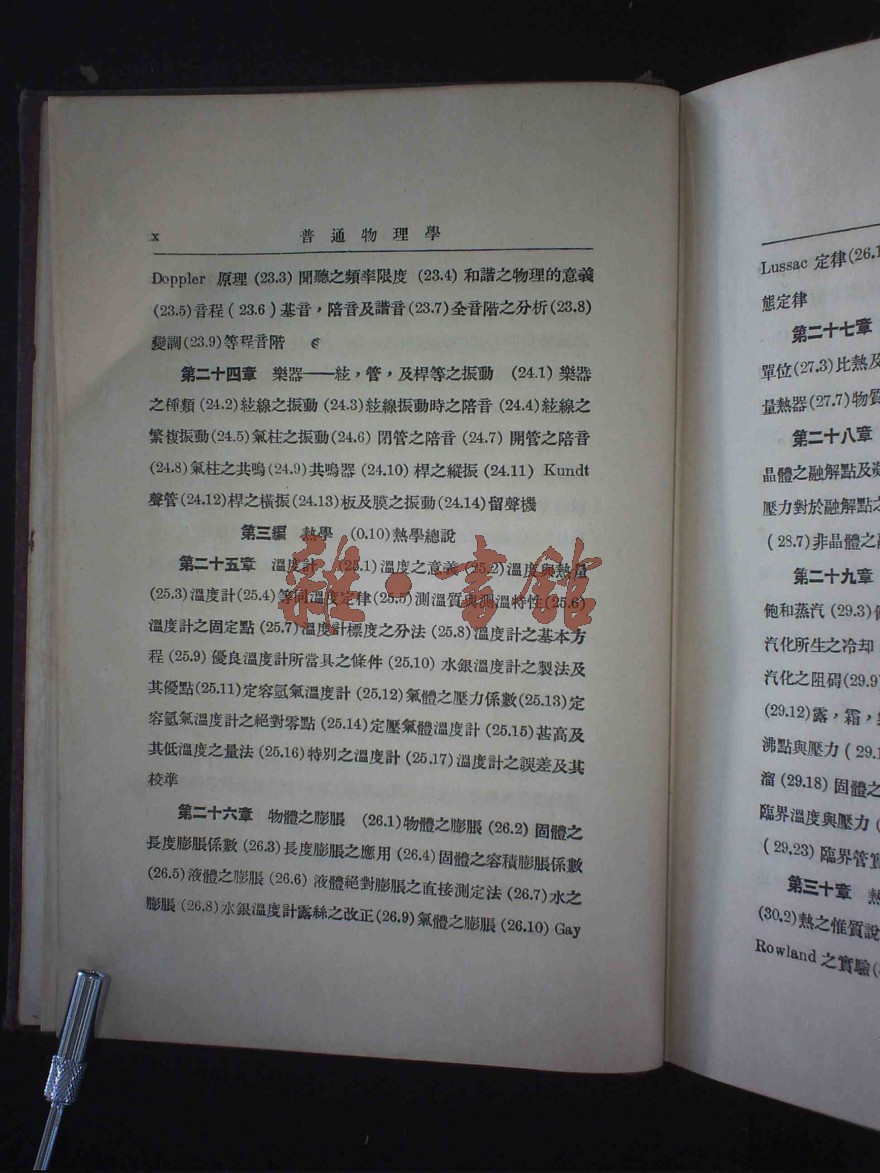 x 普通物理學
Doppler 原理 (23.3) 聞聽之頻率限度 (23.4) 和諧之物理的意義
(23.5)音程 (23.6)基音，陪音及諧音(23.7)全音階之分析(23.8)
變調(23.9)等程音階
第二十四章 樂器——絃，管，及桿等之振動 (24.1) 樂器
之種類 (24.2)絃線之振動 (24.3)絃線振動時之陪音 (24.4)絃線之
繁複振動(24.5)氣柱之振動(24.6) 閉管之陪音 (24.7) 開管之陪音
(24.8)氣柱之共鳴(24.9)共鳴器 (24.10) 桿之縱振 (24.11) Kundt
聲管(24.12)桿之橫振(24.13)板及膜之振動(24.14)留聲機
第三編 熱學 (0.10)熱學總說
第二十五章 溫度計 (25.1)溫度之意義 (25.2)溫度與熱量
(25.3)溫度計(25.4)等同溫度定律(25.5)測溫質與測溫特性(25.6)
溫度計之固定點 (25.7)溫度計標度之分法 (25.8)溫度計之基本方
程 (25.9) 優良溫度計所當具之條件 (25.10) 水銀溫度計之製法及
其優點(25.11)定容氫氣溫度計 (25.12)氣體之壓力係數(25.13)定
容氫氣溫度計之絕對零點 (25.14)定壓氣體溫度計 (25.15)甚高及
其低溫度之量法 (25.16)特别之溫度計 (25.17)溫度計之誤差及其
校準
第二十六章 物體之膨脹 (26.1)物體之膨脹 (26.2) 固體之
長度膨脹係數 (26.3)長度膨脹之應用 (26.4)固體之容積膨脹係數
(26.5)液體之膨脹 (26.6) 液體絕對膨脹之直接測定法 (26.7)水之
膨脹 (26.8)水銀溫度計露絲之改正(26.9)氣體之膨脹 (26.10) Gay
雜·書館
Lussac 定律(26.1
態定律
第二十七章
單位(27.3)比熱及
量熱器(27.7)物質
第二十八章
晶體之融解點及
壓力對於融解點之
(28.7)非晶體之
第二十九章
飽和蒸汽 (29.3)
汽化所生之冷却
汽化之阻碍(29.9)
(29.12)露，霜，
沸點與壓力 (29.1
溜 (29.18) 固體之
臨界溫度與壓力 (
(29.23) 臨界管
第三十章 熱
(30.2)熱之惟質說
Rowland 之實驗(